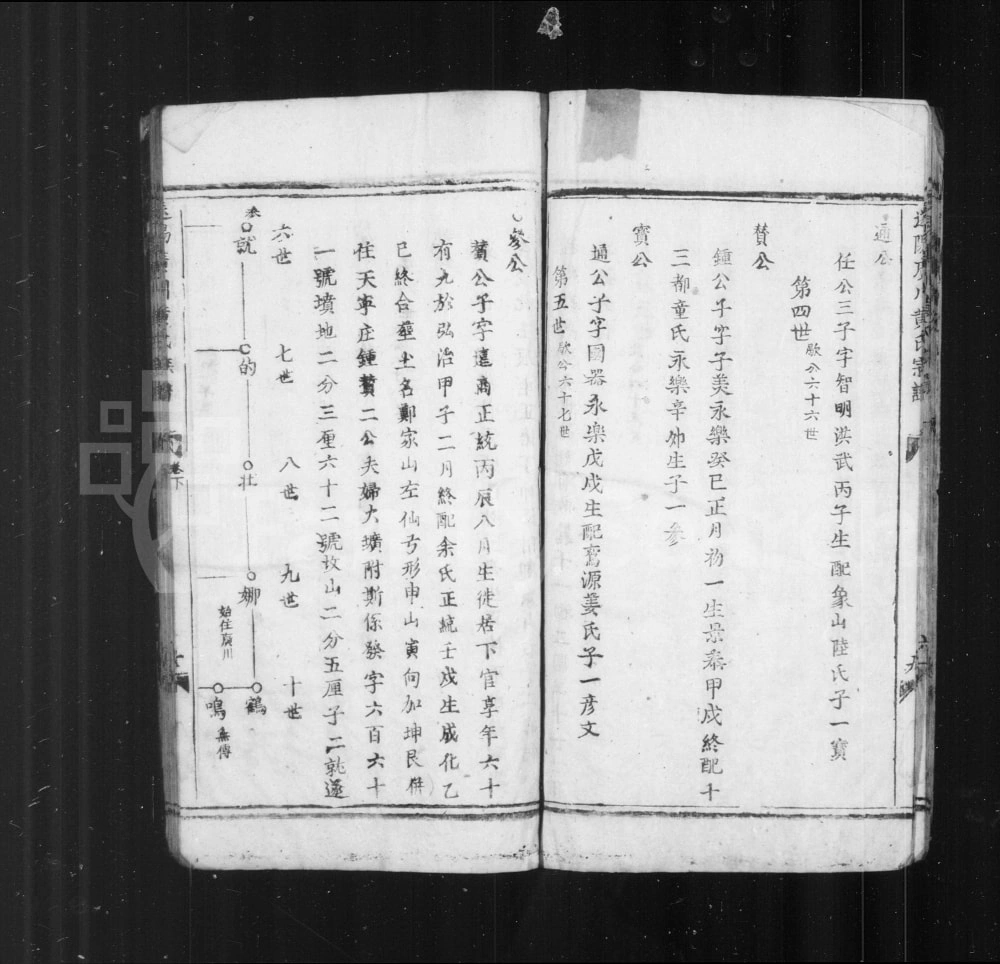 通公
任公三子字智明洪武丙子生配象山陸氏子一寶
第四世歙公六十六世
賛公
鍾公子字子美永樂癸巳正月初一生景泰甲戍終配十
三都童氏永樂辛卯生子一參
寳公
通公子字國器永樂戊戍生配鸞源姜氏子一彦文
第五世歙公六十七世
參公
賛公子字
商正統丙辰八月生徙居下官享年六十
有九於弘治甲子二月終配余氏正統壬戍生成化乙
巳終合塟土名鄭家山左仙弓形申山寅向加坤艮併
任天寜庄鍾賛二公夫婦大壙附斯係發字六百六十
一號墳地二分三厘六十二號坟山二分五厘子二就遂
六世 七世 八世 九世 十世
參 就 的 壮 娜 鶴
始住厚川
鳴 無傳
卷下